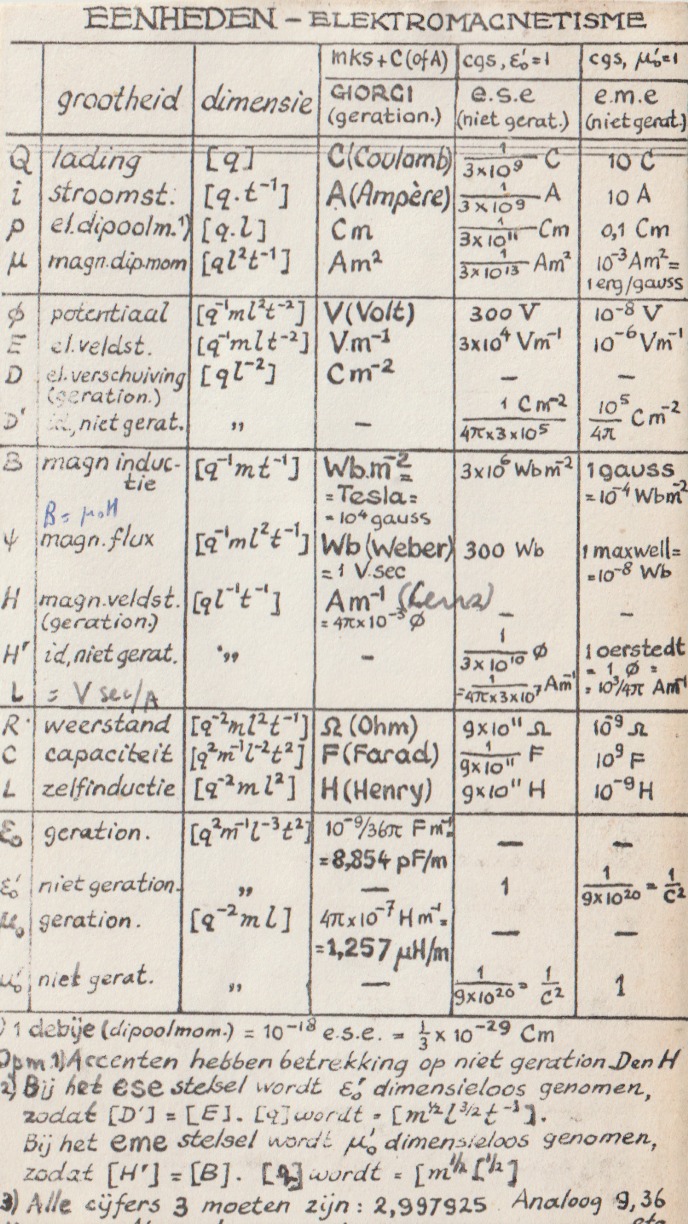 EENHEDEN – ELEKTROMAGNETISME
mks + C (of A) cgs, ε₀'=1 cgs, μ₀'=1
grootheid dimensie GIORGI e.s.e e.m.e
(geration.) (niet gerat.) (niet gerat.)
Q lading [q] C (Coulomb) 1/3×10⁹ C 10 C
i stroomst. [q.t⁻¹] A (Ampère) 1/3×10⁹ A 10 A
p el.dipoolm.¹) [q.l] Cm 1/3×10¹¹ Cm 0,1 Cm
μ magn.dip.mom [ql²t⁻¹] Am² 1/3×10¹³ Am² 10⁻³Am²=
1 erg/gauss
φ potentiaal [q⁻¹ml²t⁻²] V (Volt) 300 V 10⁻⁸ V
E el.veldst. [q⁻¹mlt⁻²] V.m⁻¹ 3×10⁴ Vm⁻¹ 10⁻⁶ Vm⁻¹
D el.verschuiving [ql⁻²] Cm⁻² – –
(geration.)
D' id, niet gerat. ,, – 1 Cm⁻²/4π×3×10⁵ 10⁵/4π Cm⁻²
B magn induc- [q⁻¹mt⁻¹] Wb.m⁻²= 3×10⁶ Wbm⁻² 1 gauss
tie = Tesla= =10⁻⁴ Wbm⁻²
B = μ₀H = 10⁴ gauss
ψ magn.flux [q⁻¹ml²t⁻¹] Wb (Weber) 300 Wb 1 maxwell=
= 1 V.sec =10⁻⁸ Wb
H magn.veldst. [ql⁻¹t⁻¹] Am⁻¹ – –
(geration.) = 4π×10⁻³ Ø
H' id, niet gerat. ,, – 1/3×10¹⁰ Ø 1 oerstedt
= 1 Ø =
L = V sec/A =1/4π×3×10⁷ Am⁻¹ = 10³/4π Am⁻¹
R weerstand [q⁻²ml²t⁻¹] Ω (Ohm) 9×10¹¹ Ω 10⁻⁹ Ω
C capaciteit [q²m⁻¹l⁻²t²] F (Farad) 1/9×10¹¹ F 10⁹ F
L zelfinductie [q⁻²ml²] H (Henry) 9×10¹¹ H 10⁻⁹ H
ε₀ geration. [q²m⁻¹l⁻³t²] 10⁻⁹/36π Fm⁻¹= – –
=8,854 pF/m
ε₀' niet geration. ,, – 1 1/9×10²⁰ = 1/c²
μ₀ geration. [q⁻²ml] 4π×10⁻⁷ Hm⁻¹= – –
=1,257 μH/m
μ₀' niet gerat. ,, – 1/9×10²⁰ = 1/c² 1
¹) 1 debije (dipoolmom.) = 10⁻¹⁸ e.s.e. = ⅓ × 10⁻²⁹ Cm
Opm 1) Accenten hebben betrekking op niet geration. D en H
2) Bij het ese stelsel wordt ε₀' dimensieloos genomen,
zodat [D'] = [E]. [q] wordt = [m^½ l^3/2 t⁻¹].
Bij het eme stelsel wordt μ₀' dimensieloos genomen,
zodat [H'] = [B]. [q] wordt = [m^½ l^½]
3) Alle cijfers 3 moeten zijn: 2,997925 Analoog 9,36
etc